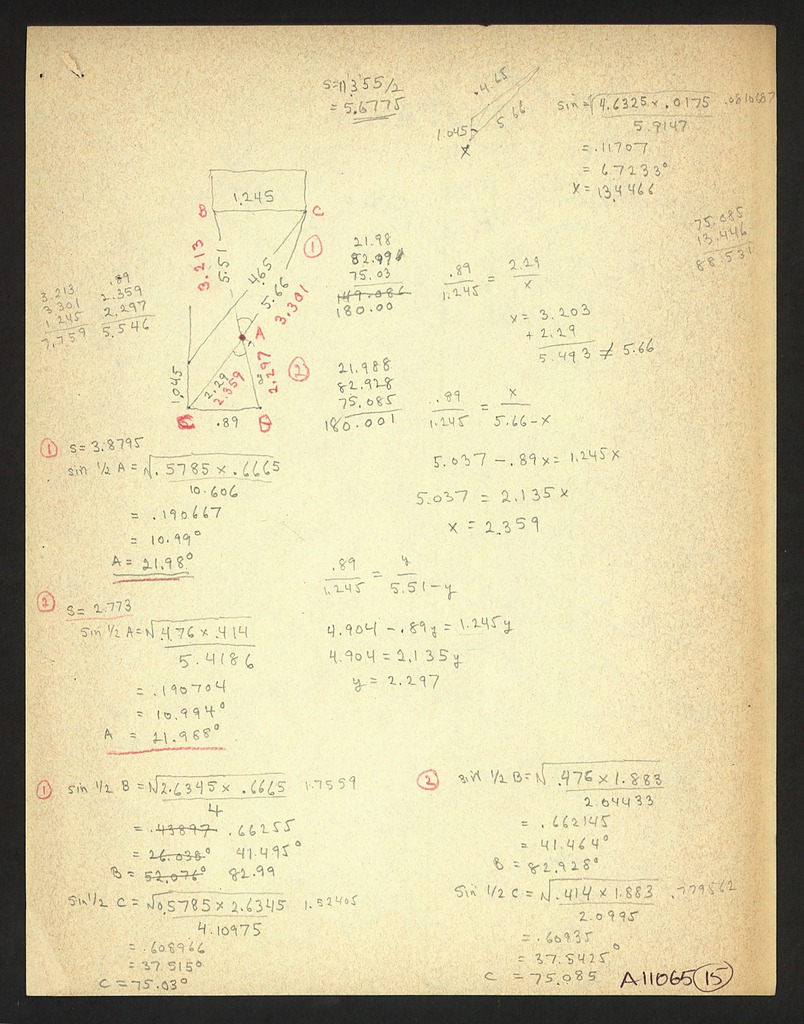 S=11355/2
= 5.6775
4.65
1.045
5.66
X
sin = √4.6325 x .0175 .0810687
5.9147
= .11707
= 6.7233°
X = 13.4466
75.085
13.446
88.531
1.245
B
C
3.213
5.51
4.65
5.66
3.301
A
1.045
2.29
2.359
y
2.297
.89
①
②
3.213
3.301
1.245
7.759
.89
2.359
2.297
5.546
21.98
82.99
75.03
149.086
180.00
.89/1.245 = 2.29/x
x = 3.203
+ 2.29
5.493 ≠ 5.66
21.988
82.928
75.085
180.001
.89/1.245 = x/5.66-x
5.037 - .89x = 1.245x
5.037 = 2.135x
x = 2.359
① S= 3.8795
sin 1/2 A = √.5785 x .6665
10.606
= .190667
= 10.99°
A = 21.98°
.89/1.245 = y/5.51-y
4.904 - .89y = 1.245y
4.904 = 2.135y
y = 2.297
② S= 2.773
sin 1/2 A = √.476 x .414
5.4186
= .190704
= 10.994°
A = 21.988°
① sin 1/2 B = √2.6345 x .6665 1.7559
4
= .43897 .66255
= 26.038° 41.495°
B = 52.076° 82.99
sin 1/2 C = √0.5785 x 2.6345 1.52405
4.10975
= .608966
= 37.515°
C = 75.03°
② sin 1/2 B = √.476 x 1.883
2.04433
= .662145
= 41.464°
B = 82.928°
sin 1/2 C = √.414 x 1.883 .779562
2.0995
= .60935
= 37.5425°
C = 75.085
A11065 (15)